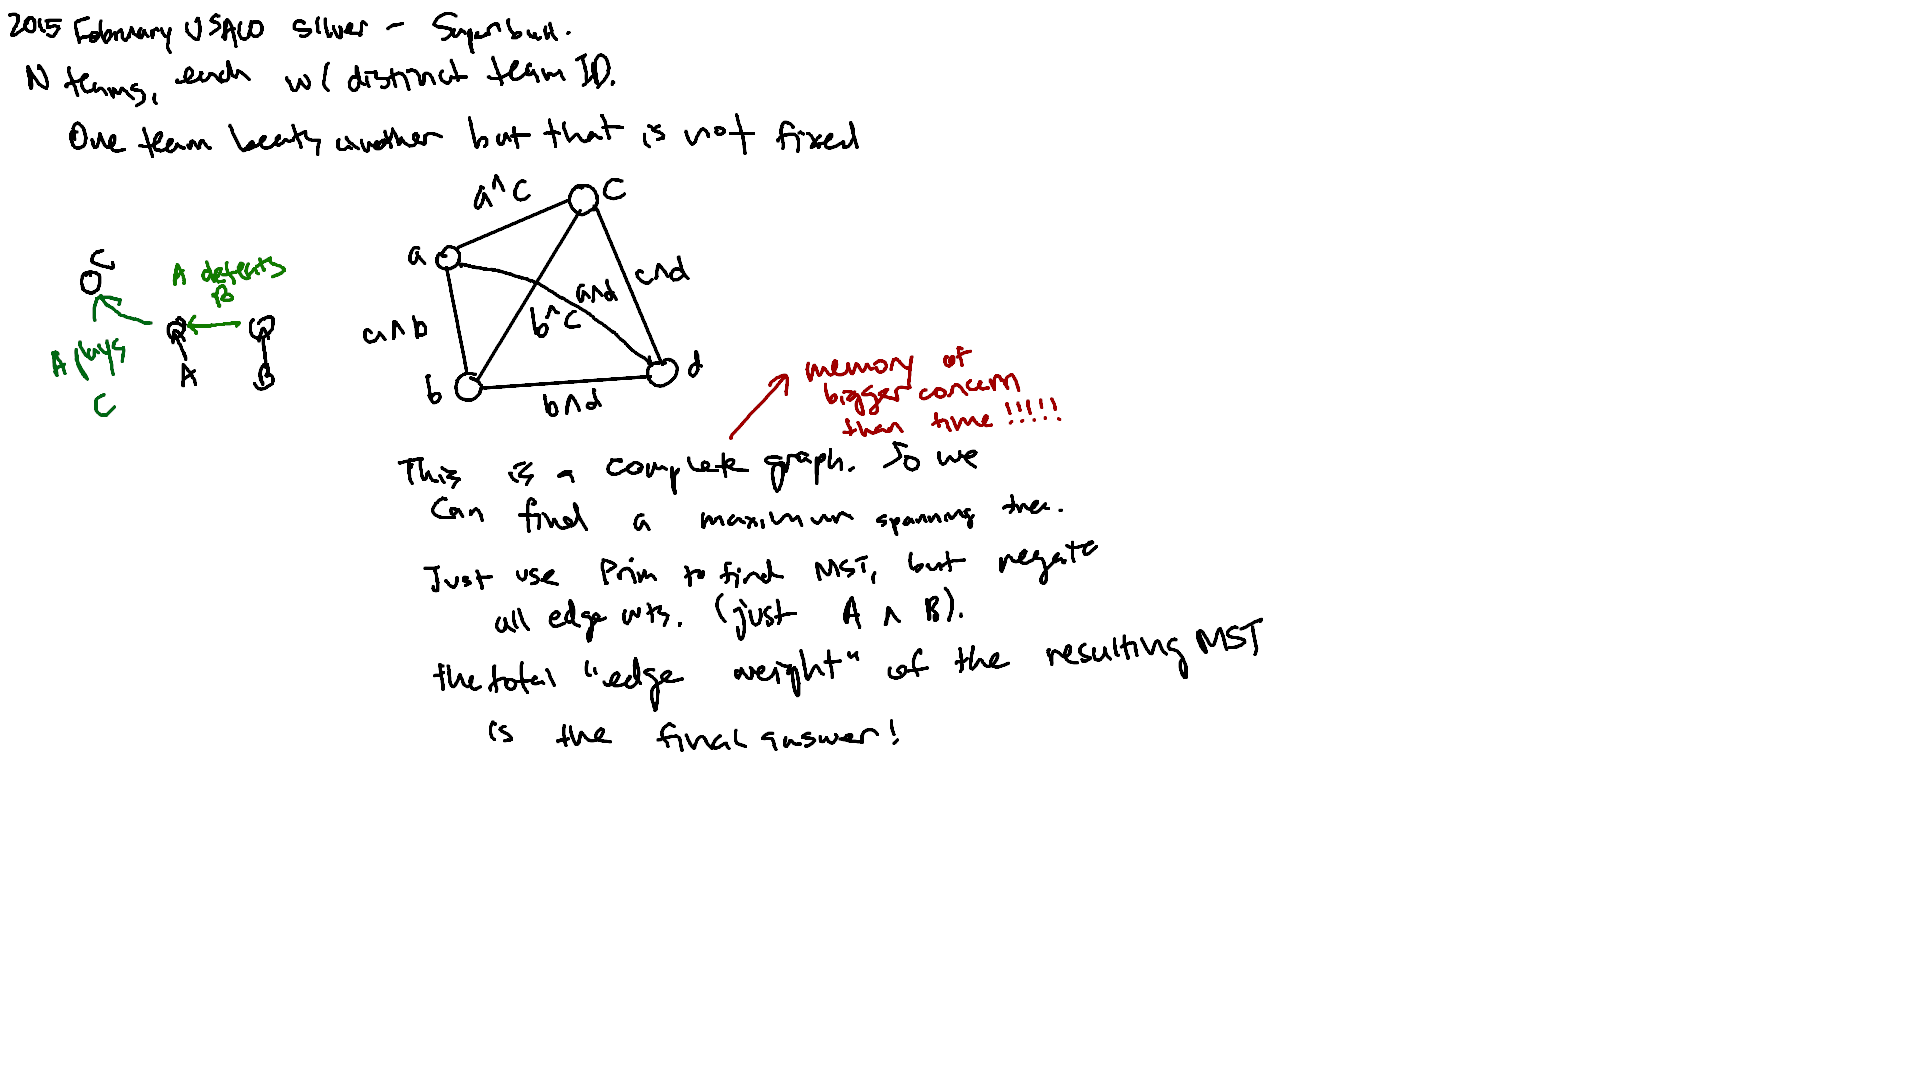 2015 February USACO Silver - Superbull.
N teams, each w/ distinct team ID.
One team beats another but that is not fixed
a^c
C
a
c^d
a^d
b^c
a^b
b
d
b^d
C
A defeats
B
A plays
C
A
B
memory of
bigger concern
than time !!!!!
This is a complete graph. So we
can find a maximum spanning tree.
Just use Prim to find MST, but negate
all edge wts. (just A ^ B).
the total "edge weight" of the resulting MST
is the final answer!